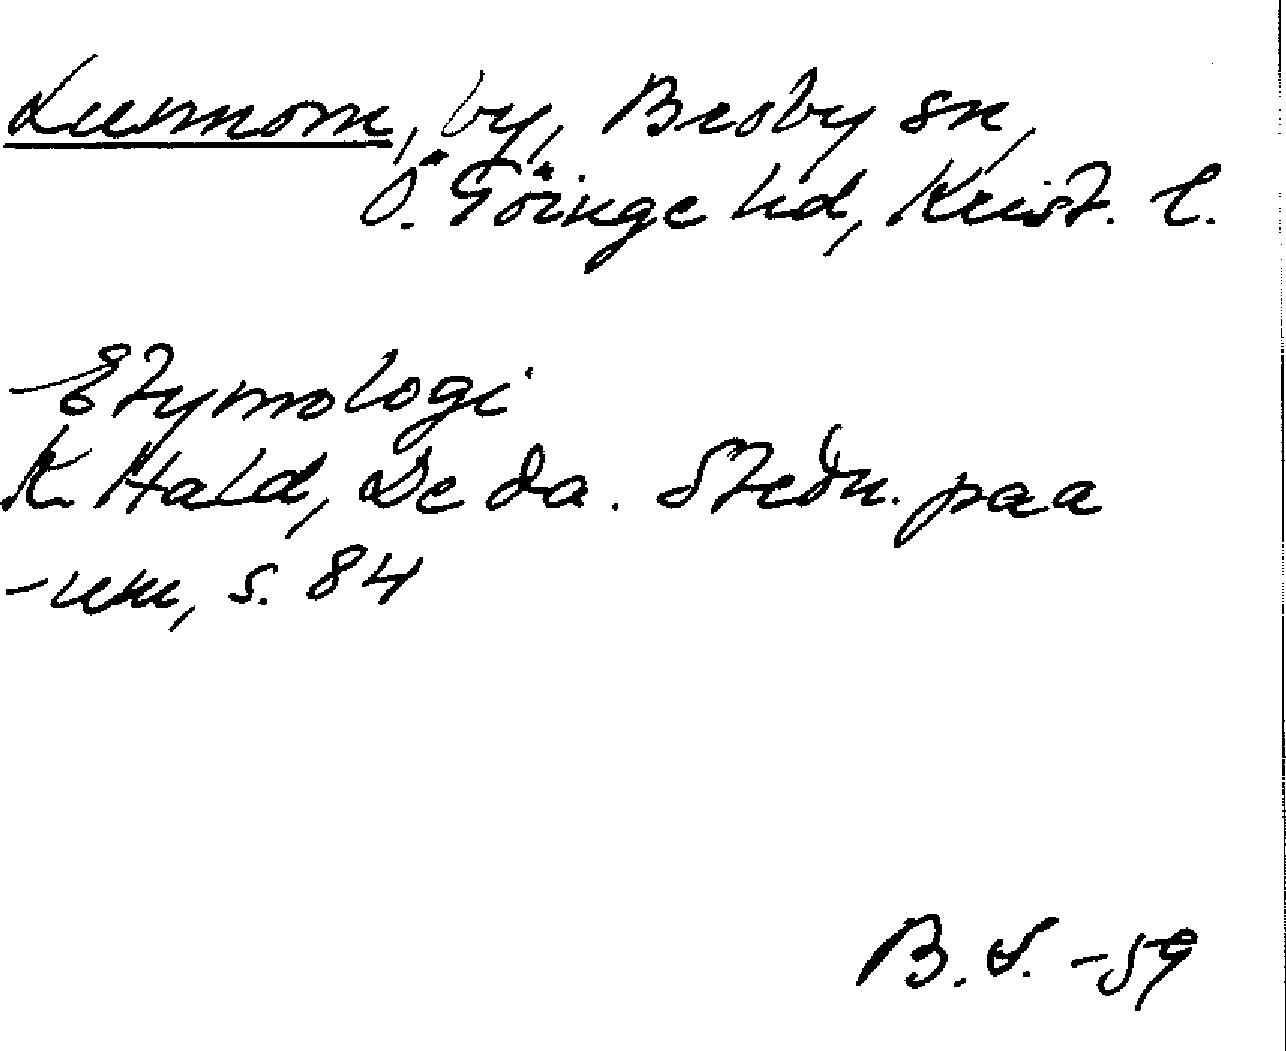 Lunnom, by, Broby sn,
Ö. Göinge hd, Krist. l.
Etymologi
K. Hald, De da. Stedn. paa
-um, s. 84
B. S. -59